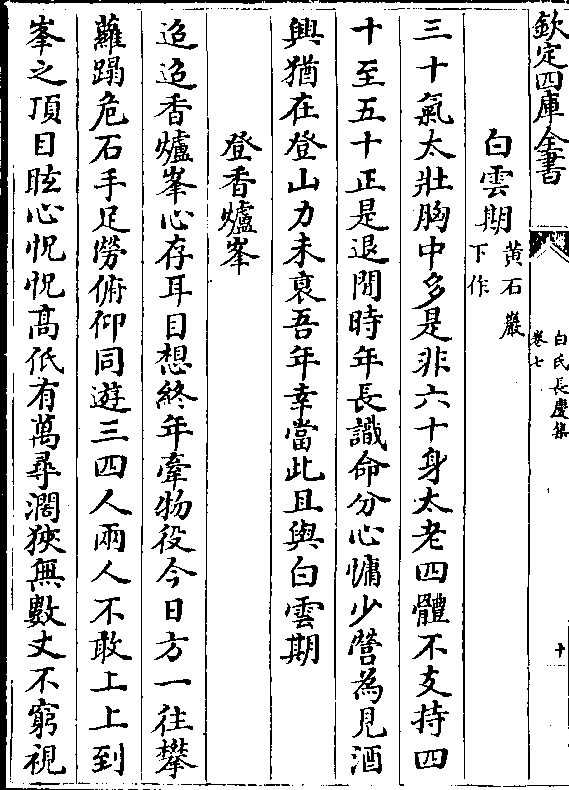 欽定四庫全書
白氏長慶集
卷七
十
白雲期
黃石巖
下作
三十氣太壯胸中多是非六十身太老四體不支持四
十至五十正是退閒時年長識命分心慵少營為見酒
興猶在登山力未衰吾年幸當此且與白雲期
登香爐峯
迢迢香爐峯心存耳目想終年牽物役今日方一往攀
蘿蹋危石手足勞俯仰同遊三四人兩人不敢上上到
峯之頂目眩心怳怳高低有萬尋濶狹無數丈不窮視